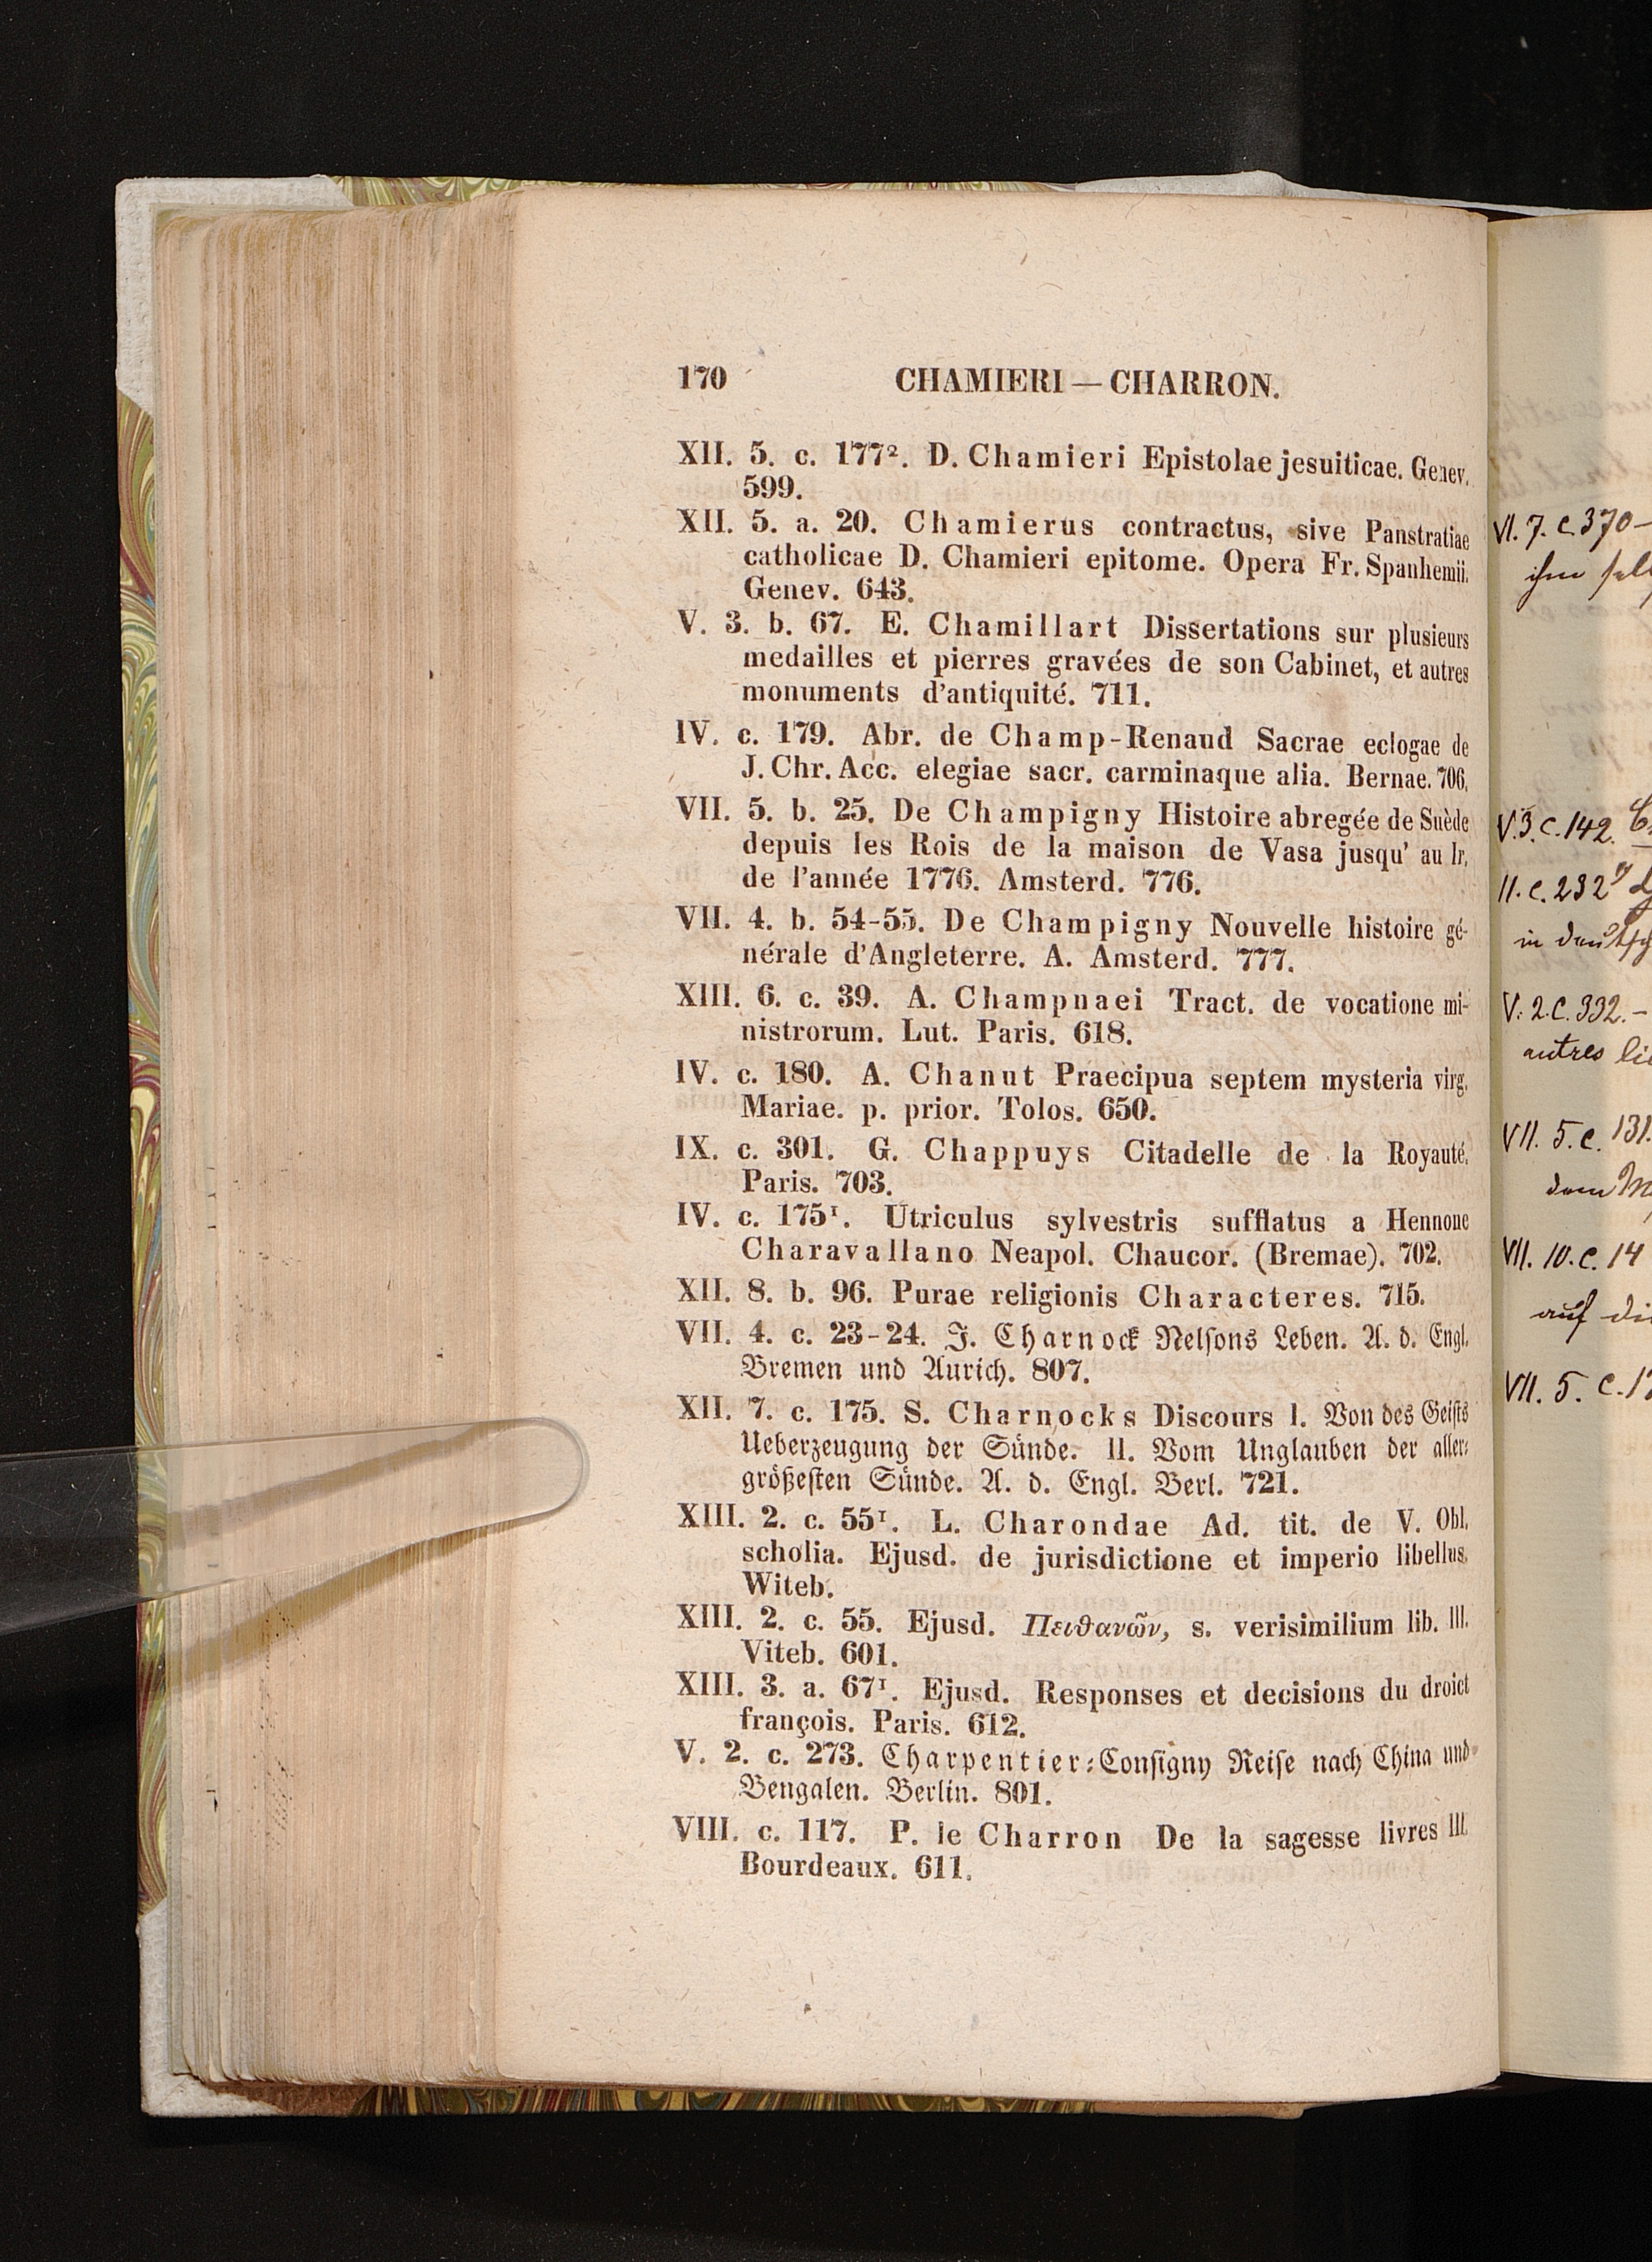 170 CHAMIERI — CHARRON.
XII. 5. c. 177². D. Chamieri Epistolae jesuiticae. Genev.
599.
XII. 5. a. 20. Chamierus contractus, sive Panstratiae
catholicae D. Chamieri epitome. Opera Fr. Spanhemii.
Genev. 643.
V. 3. b. 67. E. Chamillart Dissertations sur plusieurs
medailles et pierres gravées de son Cabinet, et autres
monuments d'antiquité. 711.
IV. c. 179. Abr. de Champ-Renaud Sacrae eclogae de
J. Chr. Acc. elegiae sacr. carminaque alia. Bernae. 706.
VII. 5. b. 25. De Champigny Histoire abregée de Suède
depuis les Rois de la maison de Vasa jusqu' au Ir.
de l'année 1776. Amsterd. 776.
VII. 4. b. 54-55. De Champigny Nouvelle histoire gé-
nérale d'Angleterre. A. Amsterd. 777.
XIII. 6. c. 39. A. Champnaei Tract. de vocatione mi-
nistrorum. Lut. Paris. 618.
IV. c. 180. A. Chanut Praecipua septem mysteria virg.
Mariae. p. prior. Tolos. 650.
IX. c. 301. G. Chappuys Citadelle de la Royauté.
Paris. 703.
IV. c. 175¹. Utriculus sylvestris sufflatus a Hennone
Charavallano Neapol. Chaucor. (Bremae). 702.
XII. 8. b. 96. Purae religionis Characteres. 715.
VII. 4. c. 23-24. J. Charnock Nelsons Leben. A. d. Engl.
Bremen und Aurich. 807.
XII. 7. c. 175. S. Charnocks Discours I. Von des Geists
Ueberzeugung der Sünde. II. Vom Unglauben der aller-
größesten Sünde. A. d. Engl. Berl. 721.
XIII. 2. c. 55¹. L. Charondae Ad. tit. de V. Obl.
scholia. Ejusd. de jurisdictione et imperio libellus.
Witeb.
XIII. 2. c. 55. Ejusd. Πειθανῶν, s. verisimilium lib. III.
Viteb. 601.
XIII. 3. a. 67¹. Ejusd. Responses et decisions du droict
françois. Paris. 612.
V. 2. c. 273. Charpentier-Consigny Reise nach China und
Bengalen. Berlin. 801.
VIII. c. 117. P. le Charron De la sagesse livres III.
Bourdeaux. 611.
VI. 7. c. 370 —
V. 3. c. 142.
II. c. 232
V. 2. c. 332. —
autres
VII. 5. c. 131.
VII. 10. c. 14
auf
VII. 5. c.